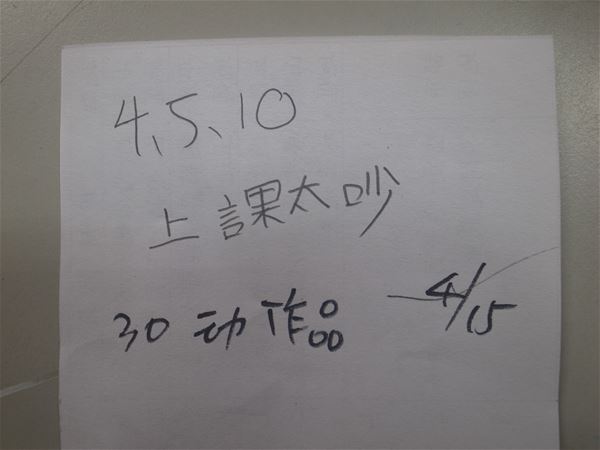 4、5、10
上課太吵
30 动作品 4/15